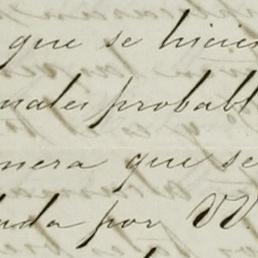 que se hicie
nales probabl
nera que se
da por VV.